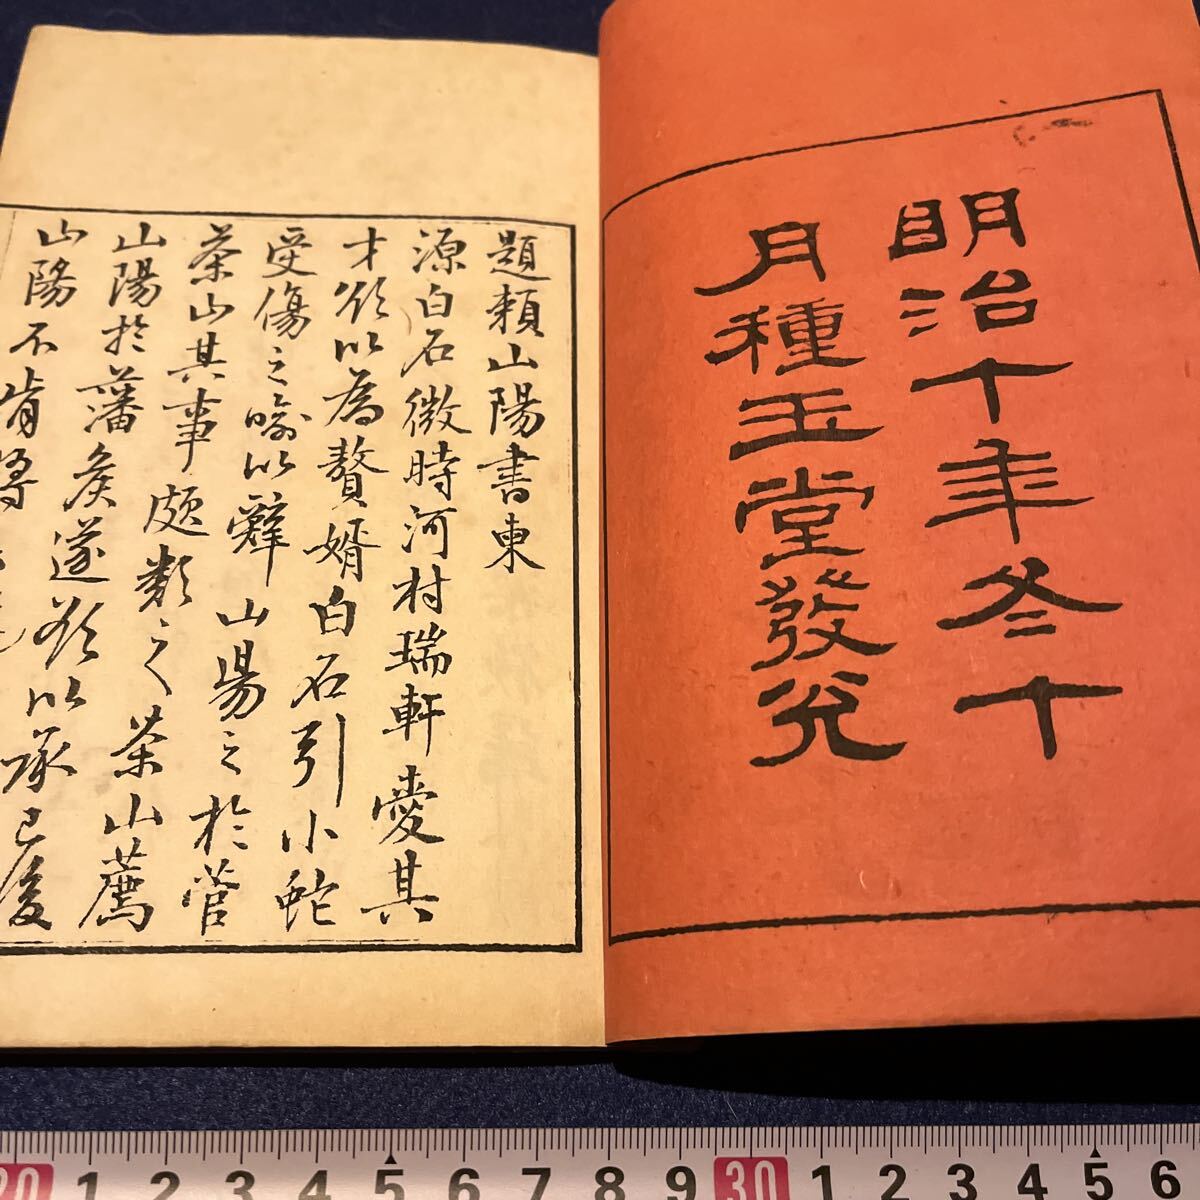 明治十年冬十
月種玉堂發兌
題頼山陽書東
源白石微時河村瑞軒愛其
才欲以為贅婿白石引小蛇
受傷之喩以辭山陽之於菅
茶山其事頗類之茶山薦
山陽於藩矦遂欲以承已後
山陽不肯
20 1 2 3 4 5 6 7 8 9 30 1 2 3 4 5 6